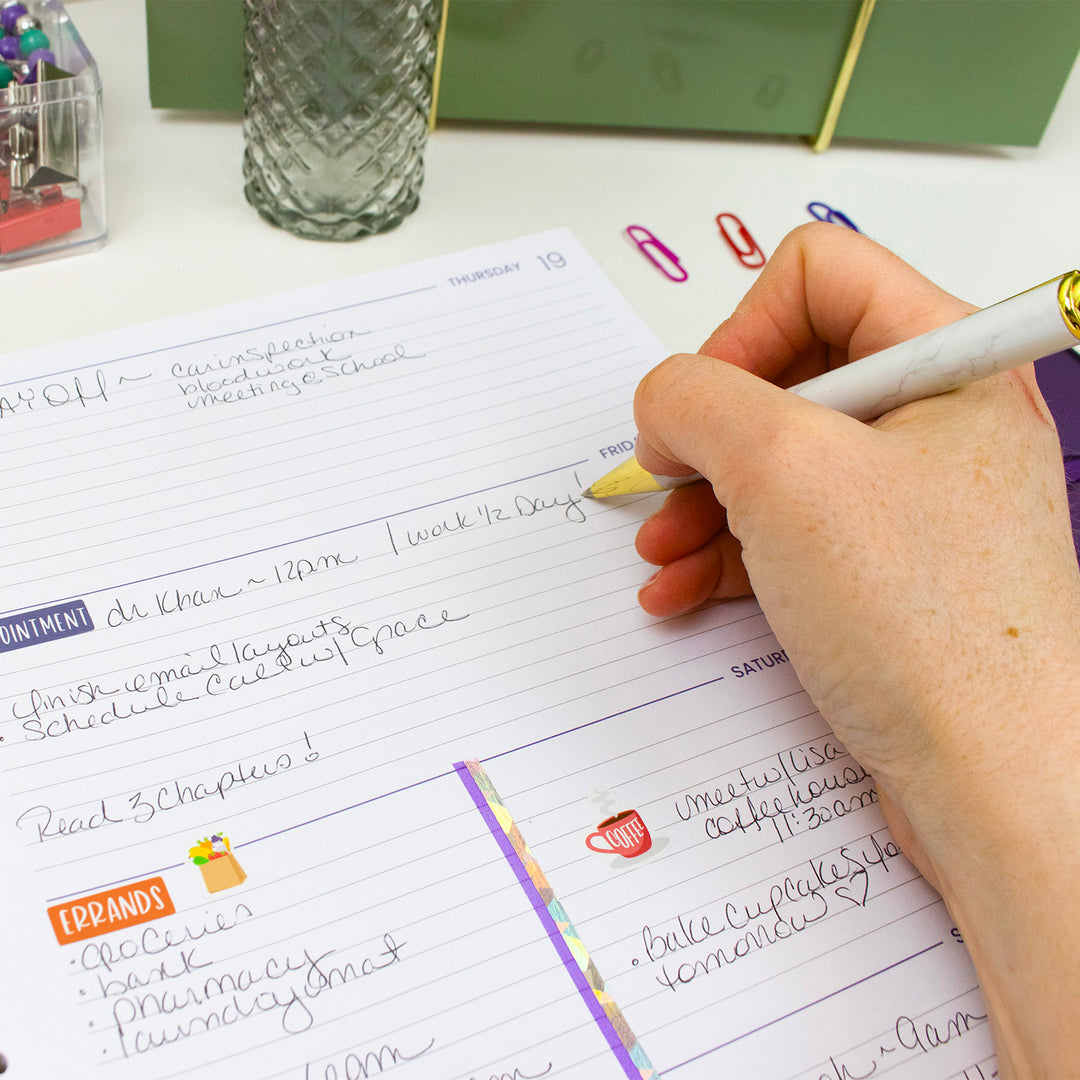 THURSDAY 19
car inspection
bloodwork
meeting @ School
dr Khan ~ 12pm / work 1/2 Day!
finish email layouts
• Schedule Call w/ Grace
Read 3 Chapters!
ERRANDS
• groceries
• bank
• pharmacy
• laundry mat
COFFEE
meet w/ Lisa
coffee house
11:30am
• Bake Cupcakes
tomorrow ♡
~ 9am